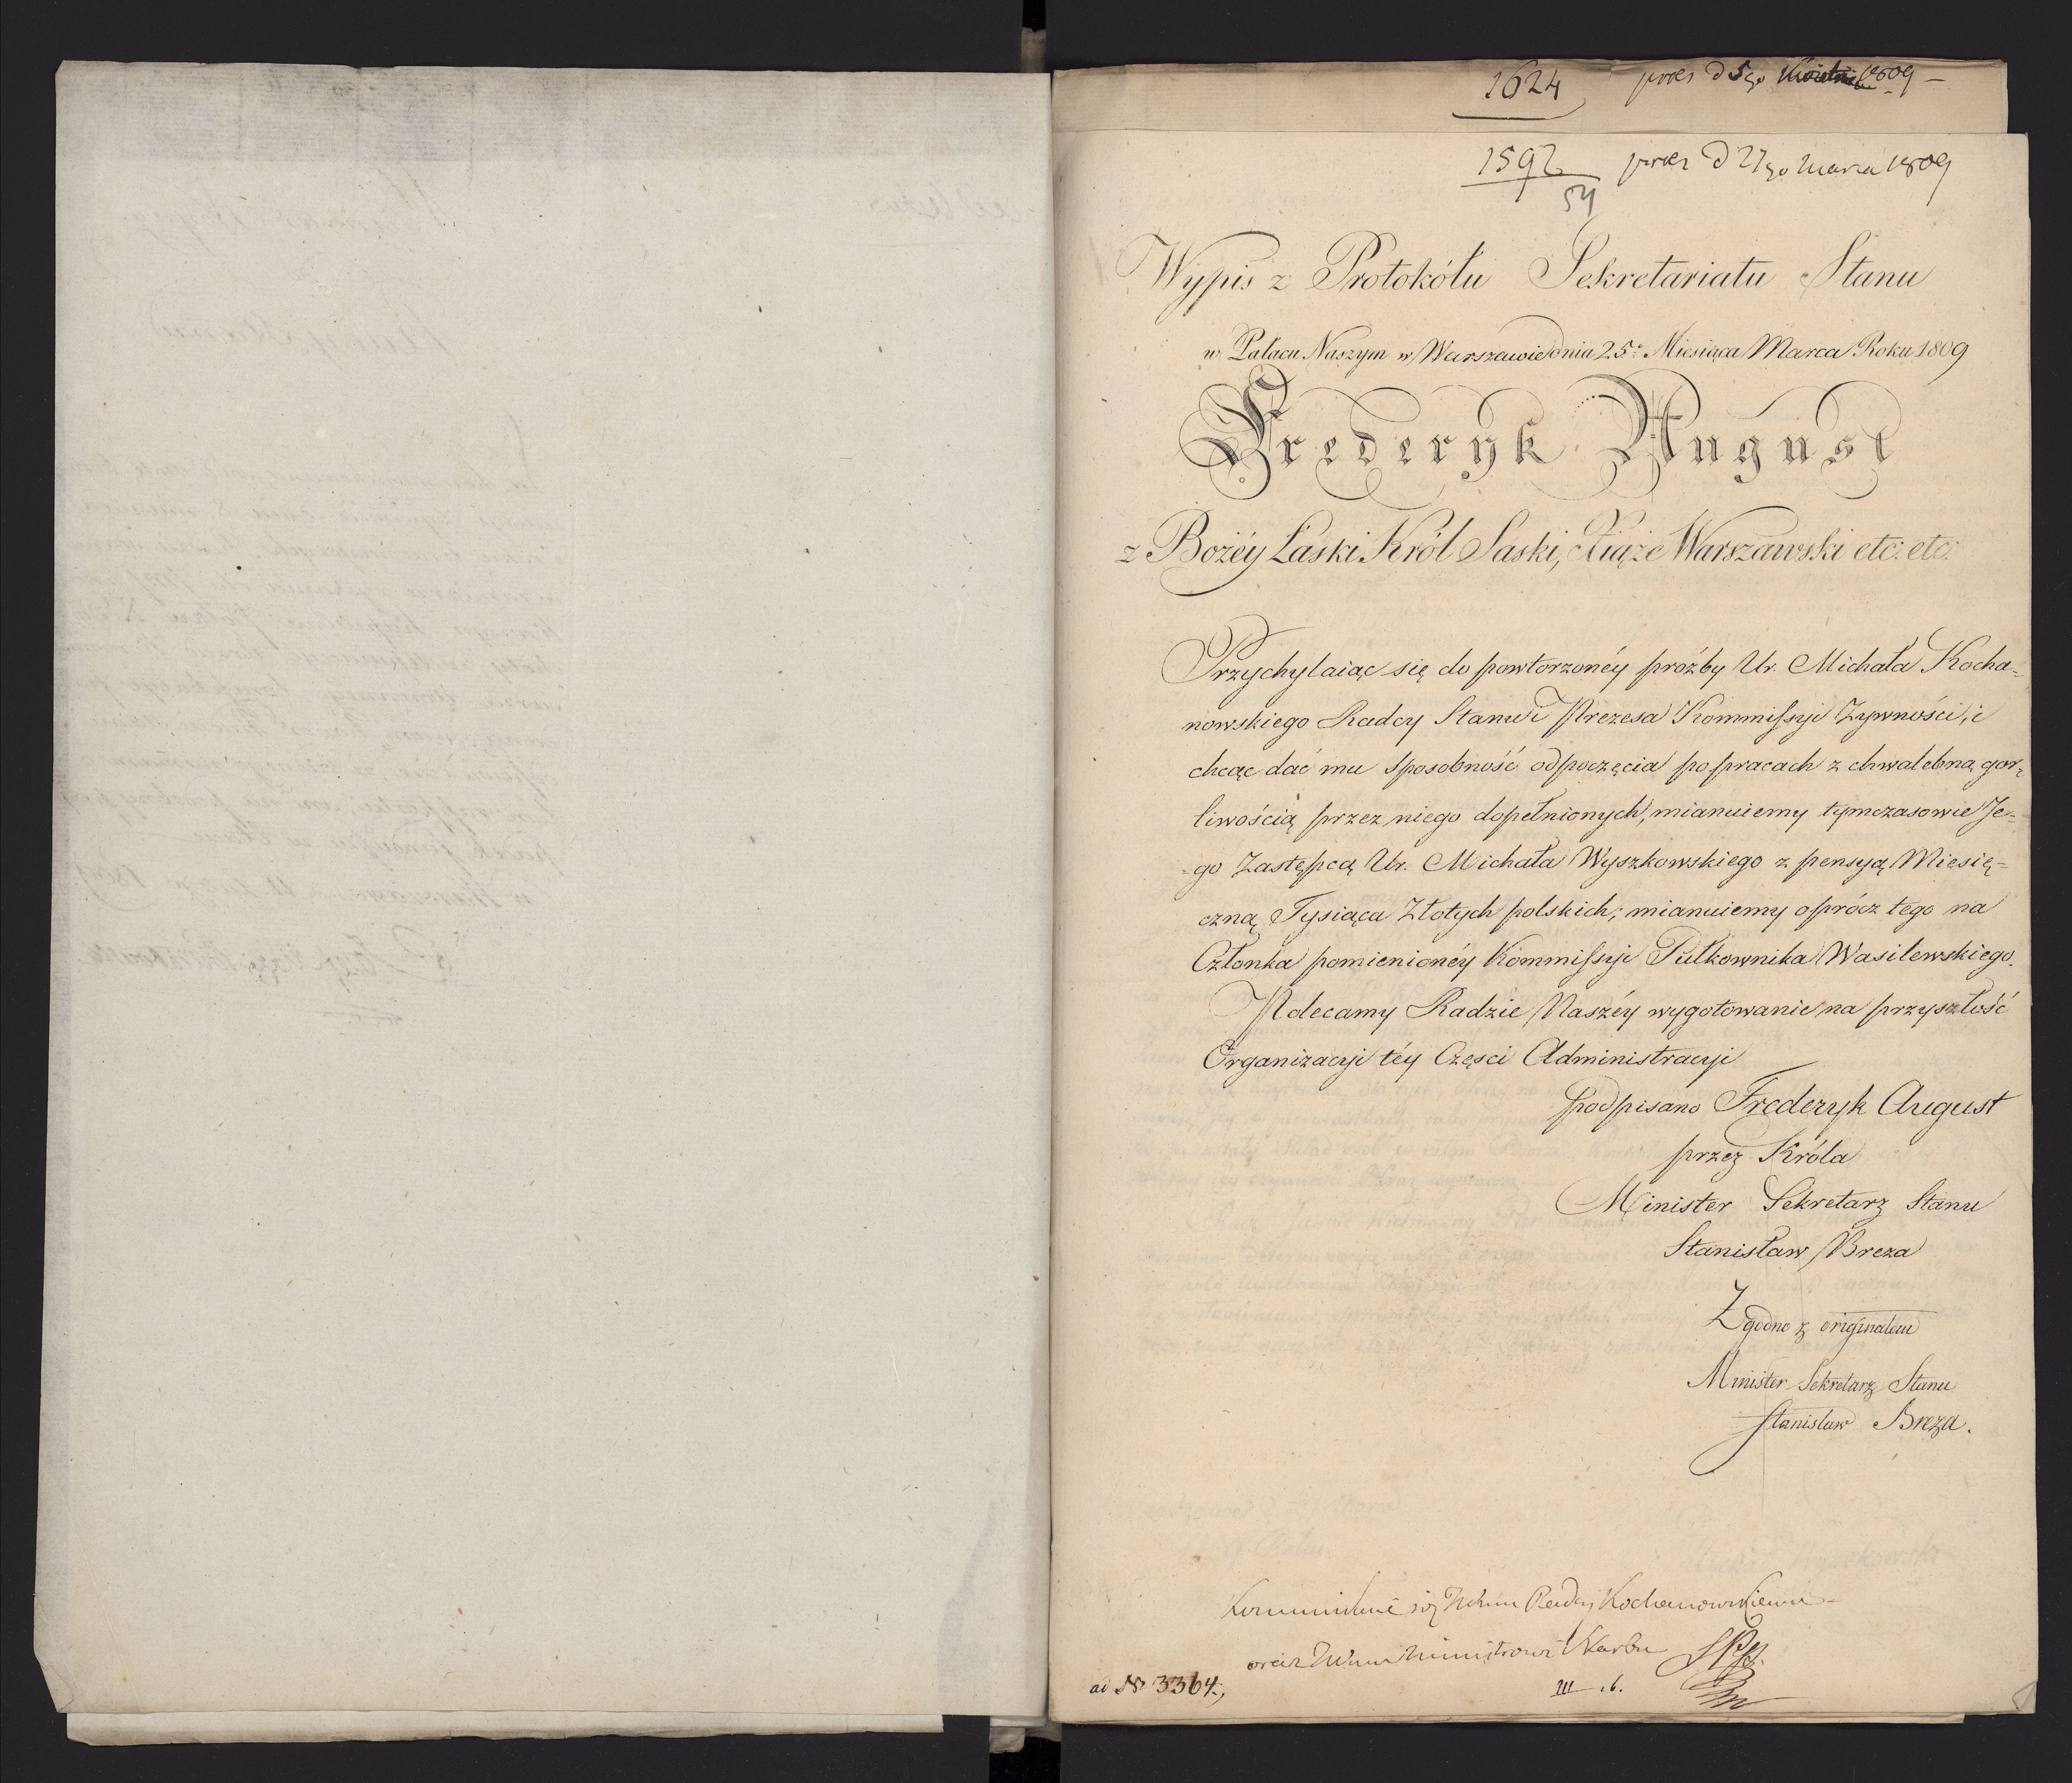 1624 pres d 5go Kwietnia 1809 –
1592 pres d 27go Marca 1809
54
Wypis z Protokółu Sekretariatu Stanu
w Pałacu Naszym w Warszawie dnia 25º Miesiąca Marca Roku 1809
Frederyk August
z Bożéy Łaski Król Saski, Xiąże Warszawski etc: etc:
Przychylaiąc się do powtorzonéy próżby Ur. Michała Kocha=
nowskiego Radcy Stanu i Prezesa Kommissyi Żywności, i
chcąc dać mu sposobność odpoczęcia po pracach z chwalebną gor=
liwością przez niego dopełnionych, mianuiemy tymczasowie Je=
=go Zastępcą Ur. Michała Wyszkowskiego z pensyą Miesię=
czną Tysiąca Złotych polskich; mianuiemy oprócz tego na
Członka pomienionéy Kommissyi Pułkownika Wasilewskiego.
Polecamy Radzie Naszéy wygotowanie na przyszłość
Organizacyi téy Częsci Administracyi
podpisano Frederyk August
przez Króla
Minister Sekretarz Stanu
Stanisław Breza
Zgodno z originałem
Minister Sekretarz Stanu
Stanisław Breza.
Radcy Kochanowskiemu –
oraz Ministrowi Skarbu
ad Nº 3364.,
III .6.